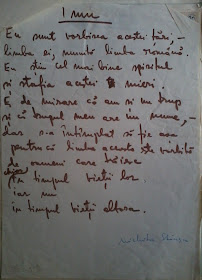 Imn
Eu sunt vorbirea acestei țări, –
limba ei, numită limba română.
Eu știu cel mai bine spiritul
și stafia acestei mieri.
E de mirare că am și un trup
și că trupul meu are un nume, –
dar s-a întîmplat să fie așa
pentru că limba aceasta este vorbită
de oameni care
în timpul vieții lor
iar nu
în timpul vieții altora.
Nichita Stănescu